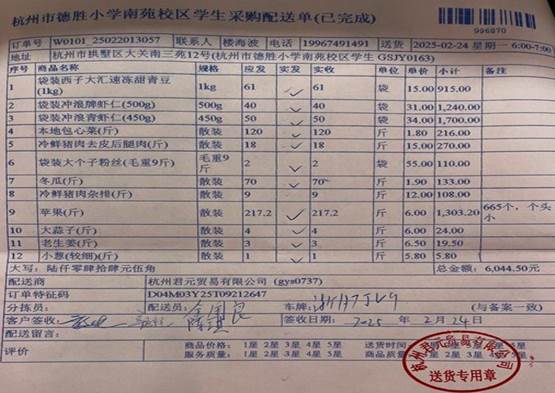 杭州市德胜小学南苑校区学生采购配送单(已完成)
996870
订单号 W0101_25022013057 联系人 楼海波 电话 19967491491 送货 2025-02-24 星期一 6:00-7:0
地址 杭州市拱墅区大关南三苑12号(杭州市德胜小学南苑校区学生 GSJY0163)
商品名称 规格 应发 实发 实收 单位 单价 小计 备注
1 袋装西子大汇速冻甜青豆(1kg) 1kg 61 ✓ 61 袋 15.00 915.00
2 袋装冲浪牌虾仁(500g) 500g 40 ✓ 40 袋 31.00 1,240.00
3 袋装冲浪青虾仁(450g) 450g 50 ✓ 50 袋 34.00 1,700.00
4 本地包心菜(斤) 散装 120 ✓ 120 斤 1.80 216.00
5 冷鲜猪肉去皮后腿肉(斤) 散装 18 ✓ 18 斤 15.00 270.00
6 袋装大个子粉丝(毛重9斤) 毛重9斤 2 ✓ 2 袋 55.00 110.00
7 冬瓜(斤) 散装 70 70 斤 1.90 133.00
8 冷鲜猪肉杂排(斤) 散装 9 ✓ 9 斤 12.00 108.00
9 苹果(斤) 散装 217.2 ✓ 217.2 斤 6.00 1,303.20 665个，个头小
10 大蒜子(斤) 散装 4 ✓ 4 斤 6.00 24.00
11 老生姜(斤) 散装 3 ✓ 3 斤 6.50 19.50
12 小葱(较细)(斤) 散装 1 ✓ 1 斤 5.80 5.80
大写: 陆仟零肆拾肆元伍角 总金额: 6,044.50元
配送商 杭州君元贸易有限公司 (gys0737)
订单特征码 D04M03Y25T09212647
分拣员: 配送员: 车牌: (与备案一致)
客户签收: 签收日期: 2025 年 2月24日
配送留言:
评价 商品价格: 1星 2星 3星 4星 5星 送货时间: 1星 2星 3星 4星 5星
服务质量: 1星 2星 3星 4星 5星 商品质量: 星 2星 3星 4星 5星
杭州君元贸易有限公司
送货专用章